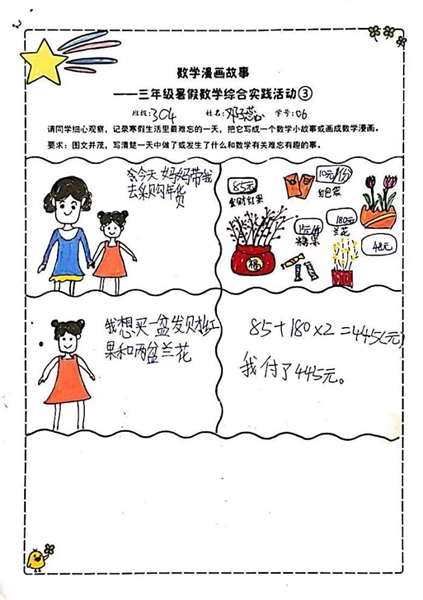 数学漫画故事
——三年级暑假数学综合实践活动③
班级:304 姓名:邓蕊 学号:06
请同学细心观察，记录寒假生活里最难忘的一天，把它写成一个数学小故事或画成数学漫画。
要求：图文并茂，写清楚一天中做了或发生了什么和数学有关难忘有趣的事。
今天妈妈带我
去采购年货
85元
发财红果
10元/份
红包袋
180元
兰花
糖果
48元
福
我想买一盆发财红
果和两盆兰花
85+180×2=445(元)
我付了445元。